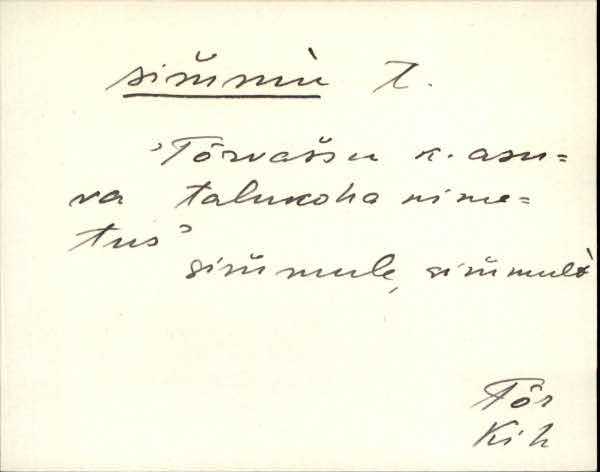 sim̆mù t.
'Tõrvaššu k. asu=
va talukoha nime=
tus'
sim̆mule, sim̆mult̀
Tõr
Kih